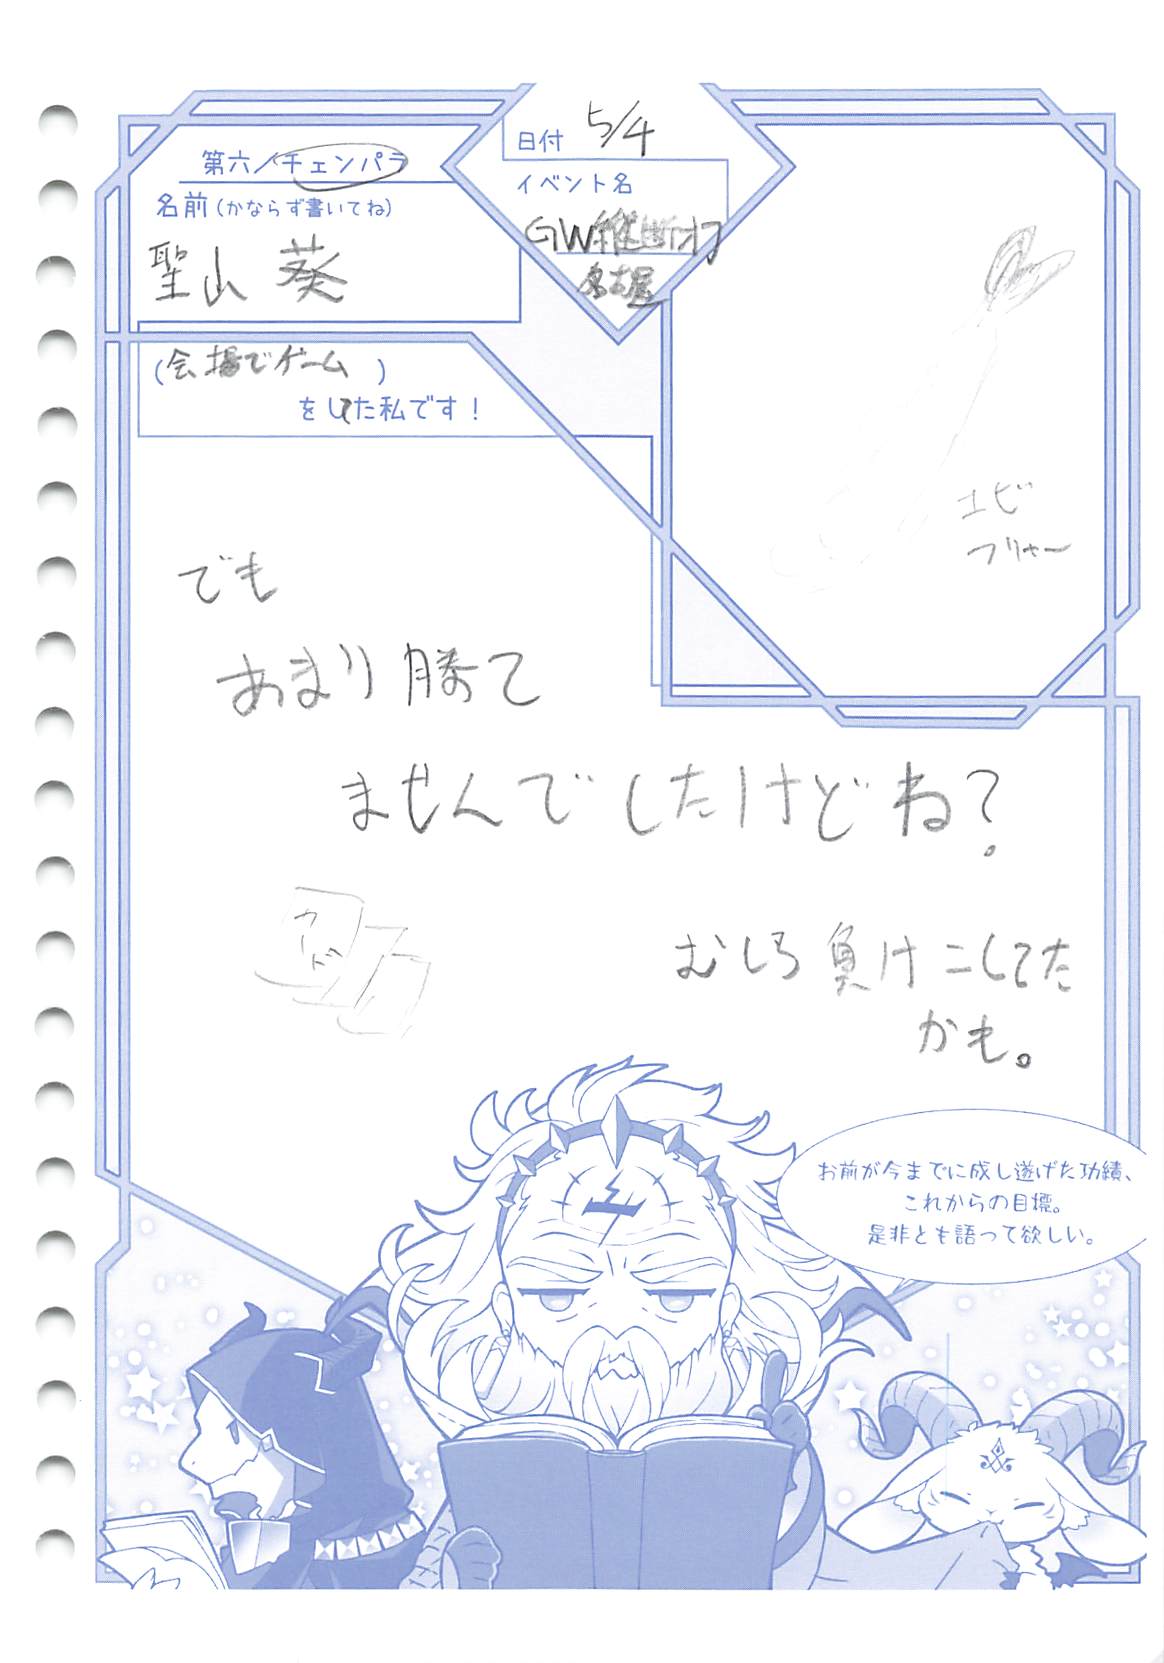 第六/チェンパラ
名前(かならず書いてね)
聖山 葵
日付 5/4
イベント名
GW縦断オフ
名古屋
(会場でゲーム)
をした私です！
エビ
フリャー
でも
あまり勝て
ませんでしたけどね?
カード
むしろ負けこしてた
かも。
お前が今までに成し遂げた功績、
これからの目標。
是非とも語って欲しい。